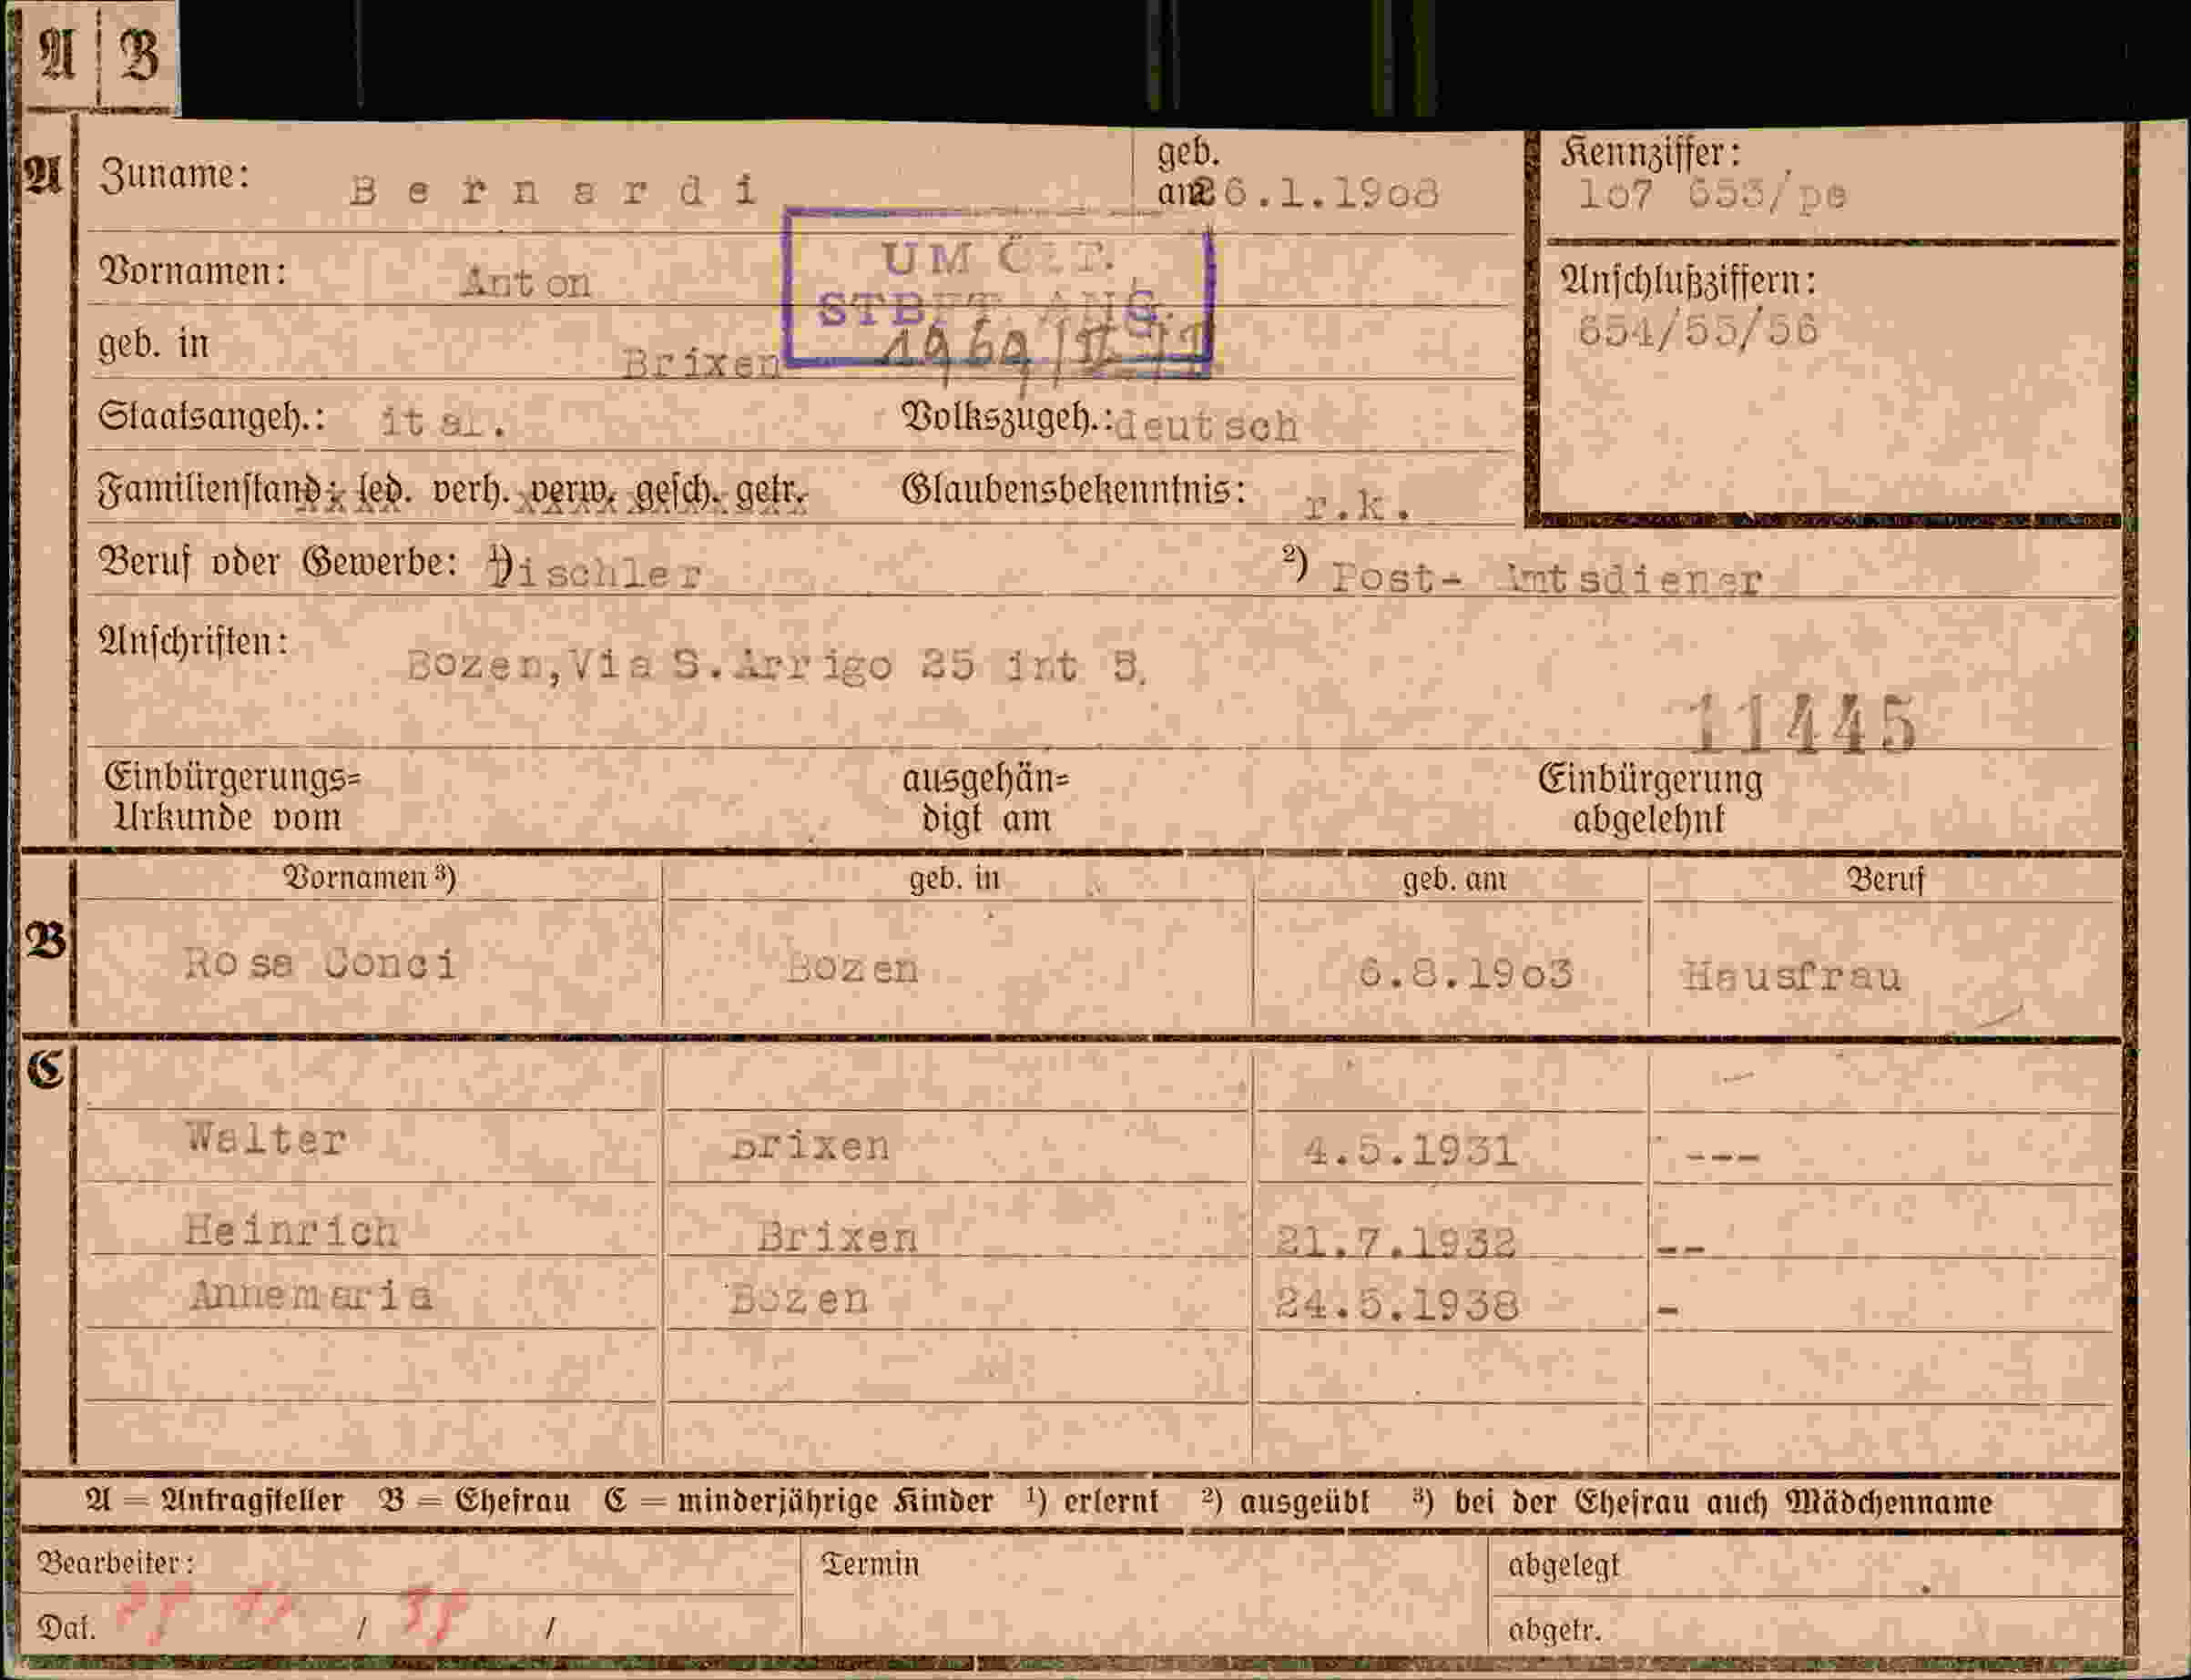 A B
A Zuname: Bernardi geb. am 26.1.1908 Kennziffer:
107 653/pe
Vornamen: Anton Anschlußziffern:
UM
654/55/56
geb. in Brixen
Staatsangeh.: ital. Volkszugeh.: deutsch
Familienstand: led. verh. verw. gesch. getr. Glaubensbekenntnis: r.k.
Beruf oder Gewerbe: 1) Tischler 2) Post- Amtsdiener
Anschriften: Bozen, Via S.Arrigo 25 int 5.
11445
Einbürgerungs= ausgehän= Einbürgerung
Urkunde vom digt am abgelehnt
Vornamen ³) geb. in geb. am Beruf
B Rosa Conci Bozen 6.8.1903 Hausfrau
C
Walter Brixen 4.5.1931 ---
Heinrich Brixen 21.7.1932 --
Annemaria Bozen 24.5.1938 -
A = Antragsteller B = Ehefrau C = minderjährige Kinder ¹) erlernt ²) ausgeübt ³) bei der Ehefrau auch Mädchenname
Bearbeiter: Termin abgelegt
Dat. / / abgetr.